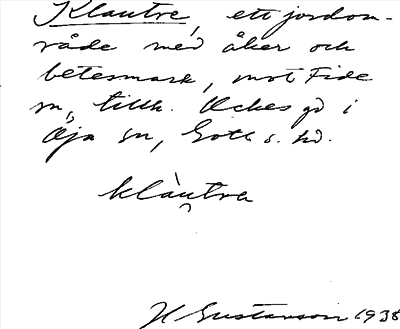 Klautre, ett jordom-
råde med åker och
betesmark, mot Fide
sn, tillh. Ockes gd i
Öja sn, Gotl. s. hd.
klàutrα
H Gustavson 1938